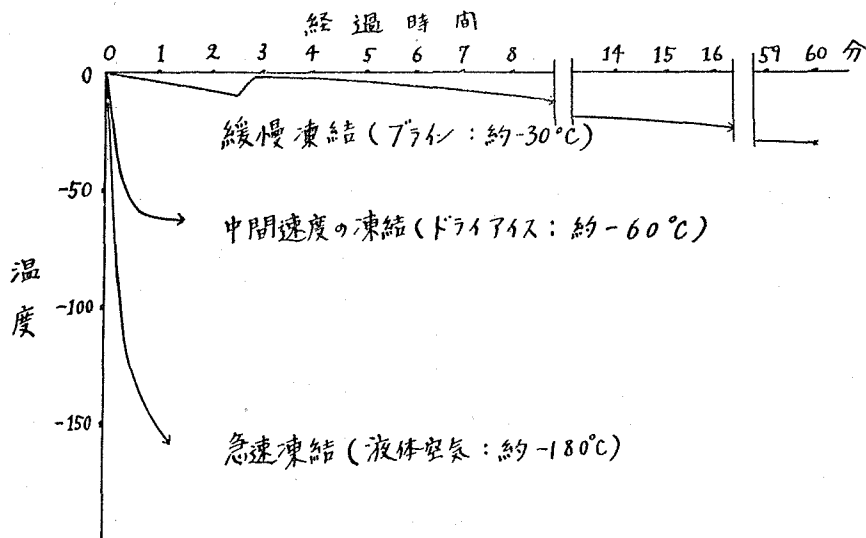 経過時間
0 1 2 3 4 5 6 7 8 14 15 16 59 60 分
0
緩慢凍結(ブライン:約-30°C)
-50
中間速度の凍結(ドライアイス:約-60°C)
温度
-100
-150
急速凍結(液体空気:約-180°C)